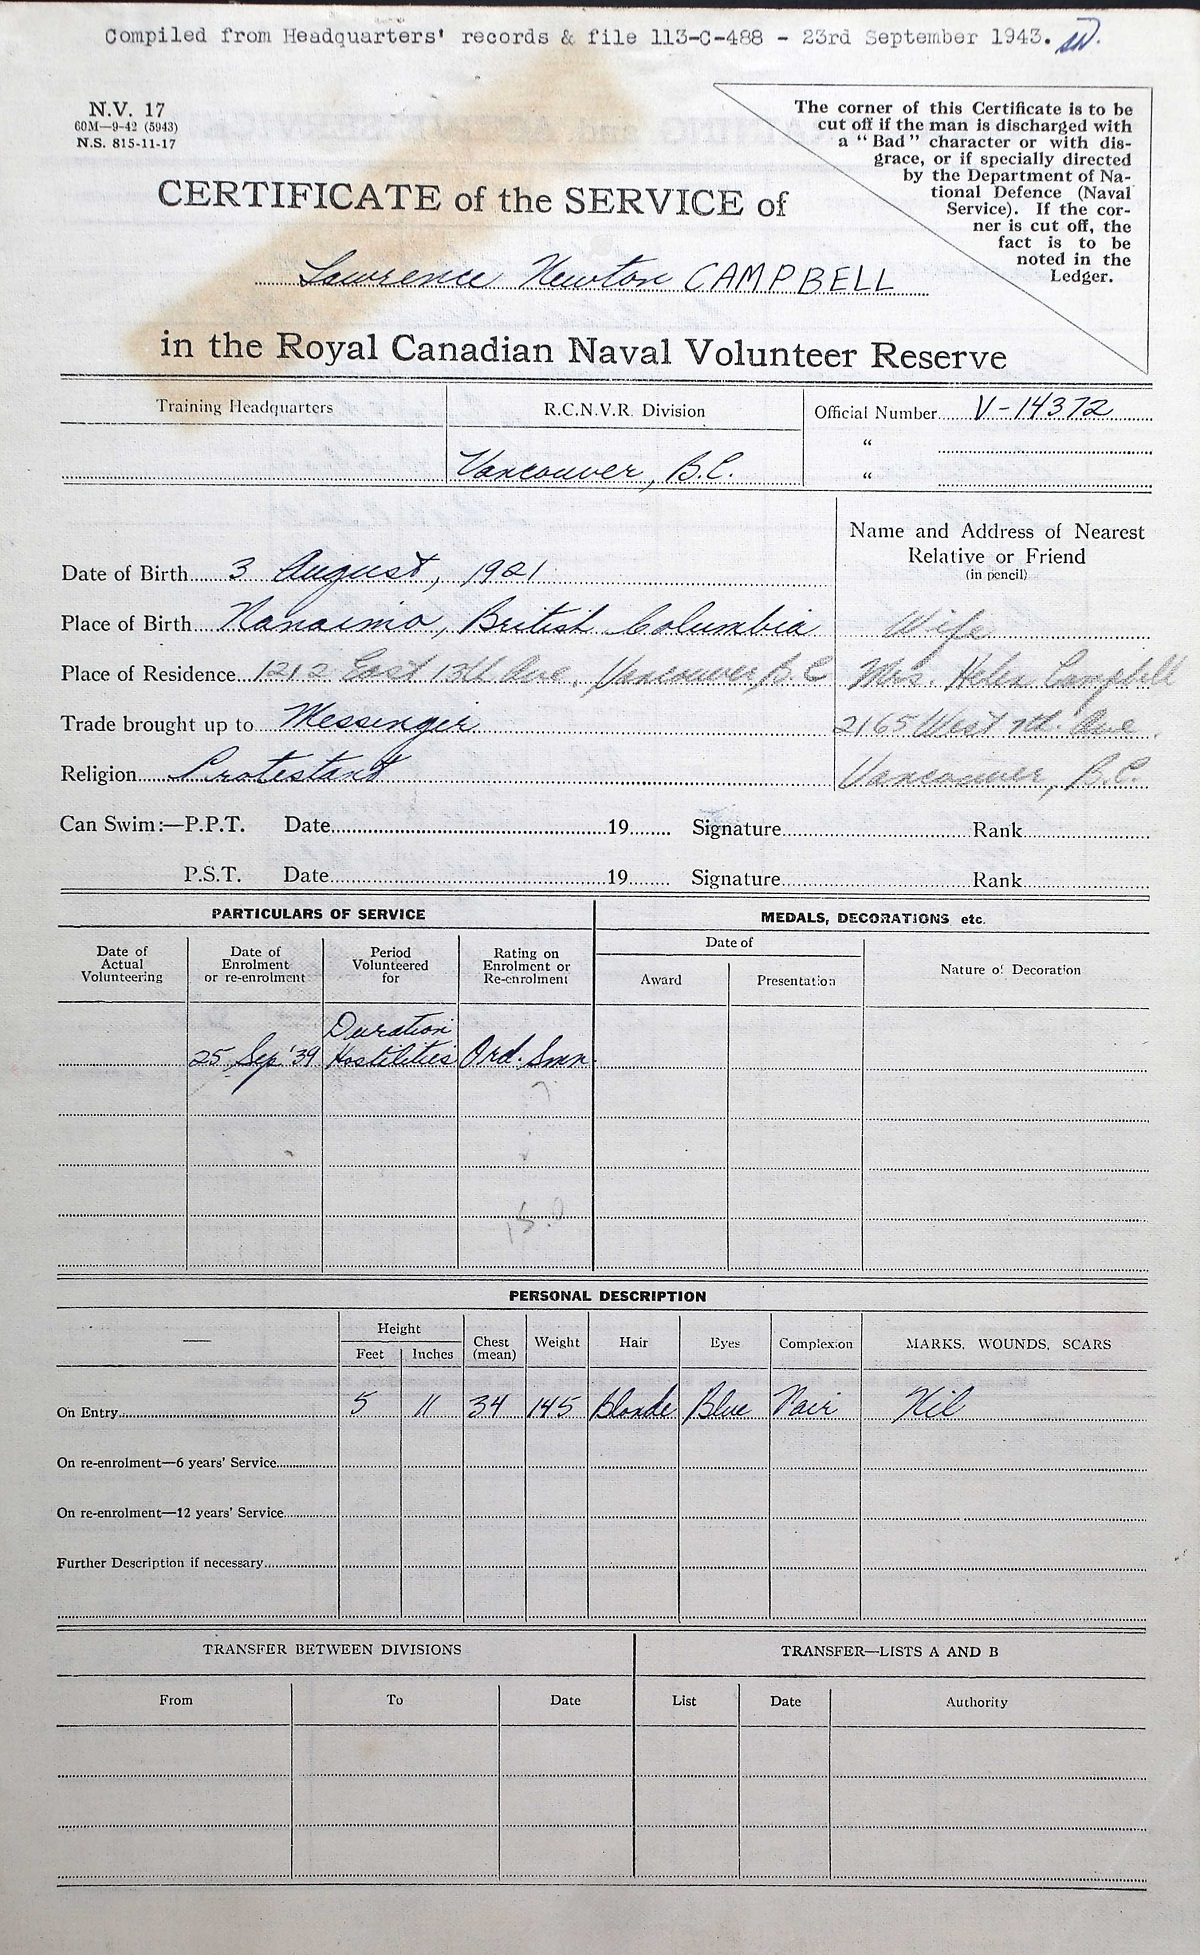 Compiled from Headquarters' records & file 113-C-488 - 23rd September 1943.
N.V. 17
60M—9-42 (5943)
N.S. 815-11-17
The corner of this Certificate is to be
cut off if the man is discharged with
a "Bad" character or with dis-
grace, or if specially directed
by the Department of Na-
tional Defence (Naval
Service). If the cor-
ner is cut off, the
fact is to be
noted in the
Ledger.
CERTIFICATE of the SERVICE of
Lawrence Newton CAMPBELL
in the Royal Canadian Naval Volunteer Reserve
Training Headquarters R.C.N.V.R. Division Official Number V-14372
"
Vancouver, B.C. "
Name and Address of Nearest
Relative or Friend
(in pencil)
Date of Birth 3 August, 1921
Place of Birth Nanaimo, British Columbia Wife
Place of Residence 1212 East 13th Ave, Vancouver, B.C Mrs. Helen Campbell
Trade brought up to Messenger 2165 West 7th. Ave.
Religion Protestant Vancouver, B.C.
Can Swim:—P.P.T. Date 19 Signature Rank
P.S.T. Date 19 Signature Rank
PARTICULARS OF SERVICE MEDALS, DECORATIONS etc.
Date of Actual Volunteering Date of Enrolment or re-enrolment Period Volunteered for Rating on Enrolment or Re-enrolment Date of Nature of Decoration
Award Presentation
Duration
25 Sep '39 Hostilities Ord. Smn.
PERSONAL DESCRIPTION
— Height Chest (mean) Weight Hair Eyes Complexion MARKS, WOUNDS, SCARS
Feet Inches
On Entry 5 11 34 145 Blonde Blue Fair Nil
On re-enrolment—6 years' Service
On re-enrolment—12 years' Service
Further Description if necessary
TRANSFER BETWEEN DIVISIONS TRANSFER—LISTS A AND B
From To Date List Date Authority